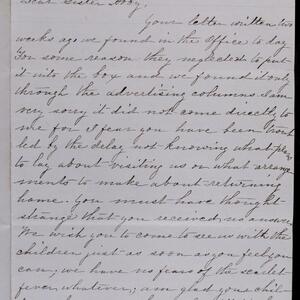 Dear Sister Abby,
Your letter written two
weeks ago we found in the Office to day
For some reason they neglected to put
it into the box and we found it only
through the advertising columns. I am
very sorry it did not come directly to
me for I fear you have been troub
led by the delay not knowing what plans
to lay about visiting us or what arrange
ments to make about returning
home. You must have thought
strange that you received no answer
We wish you to come to see us with the
children just as soon as you feel you
can; we have no fears of the scarlet
fever, whatever; am glad your chil-